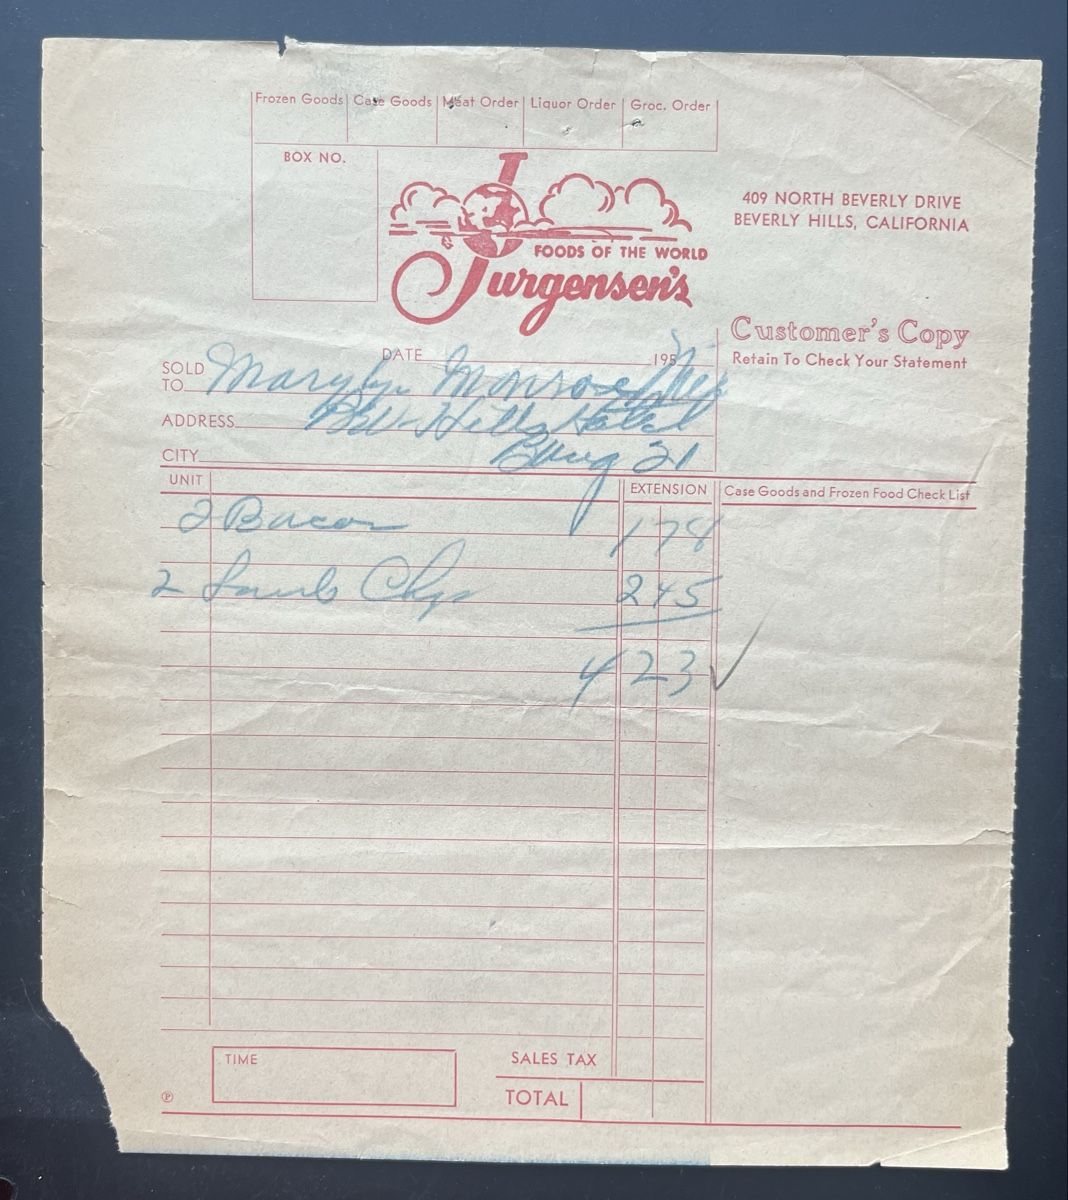 Frozen Goods Case Goods Meat Order Liquor Order Groc. Order
BOX NO.
409 NORTH BEVERLY DRIVE
BEVERLY HILLS, CALIFORNIA
FOODS OF THE WORLD
Jurgensen's
Customer's Copy
Retain To Check Your Statement
DATE 195
SOLD
TO Marylyn Monroe
ADDRESS Bev-Hills Hotel
CITY Bung 21
UNIT EXTENSION Case Goods and Frozen Food Check List
2 Bacon 178
2 Lamb Chps 245
423 ✓
TIME
SALES TAX
TOTAL
℗